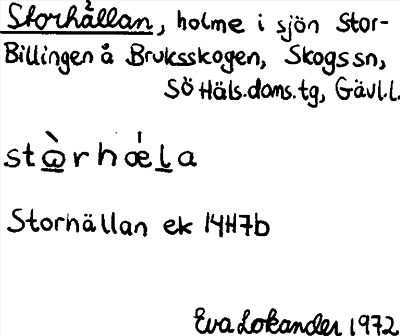 Storhällan, holme i sjön Stor-
Billingen å Bruksskogen, Skogs sn,
SÖ Häls.doms.tg, Gävl.l.
stò̲rhǽl̲a
Storhällan ek 14H7b
Eva Lokander 1972